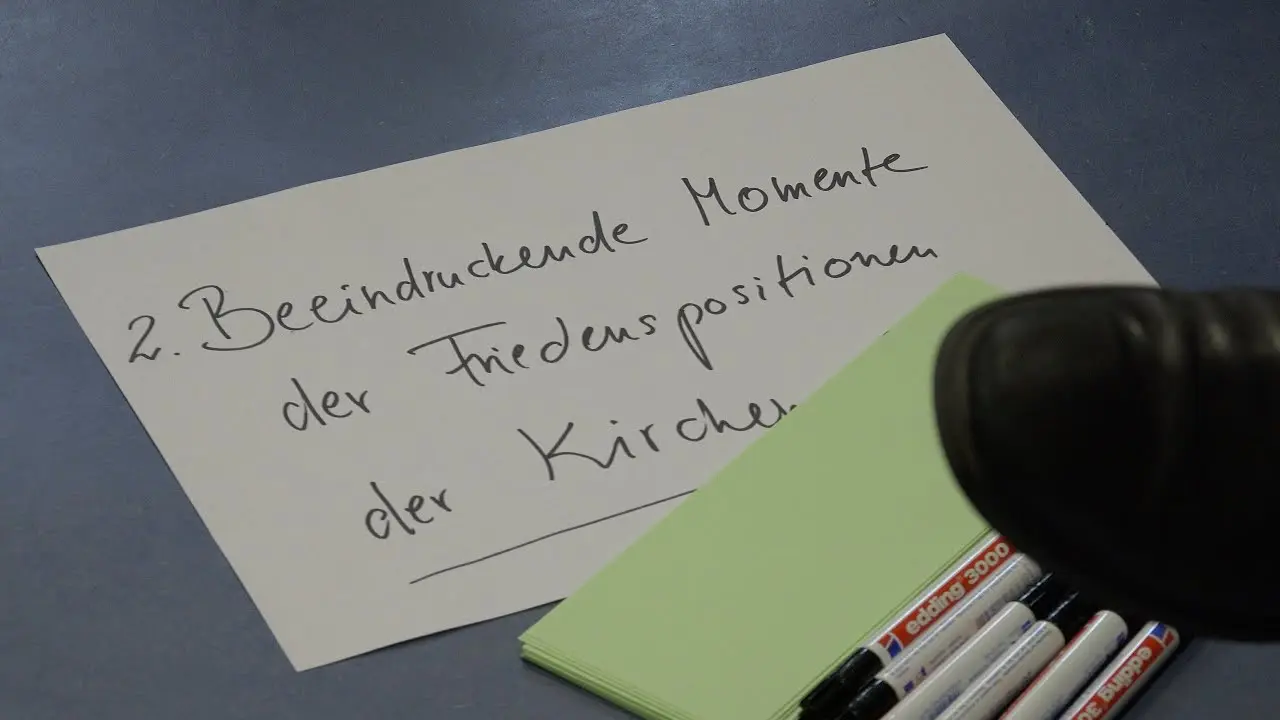 2. Beeindruckende Momente
der Friedenspositionen
der Kirchen
edding 3000
edding 30